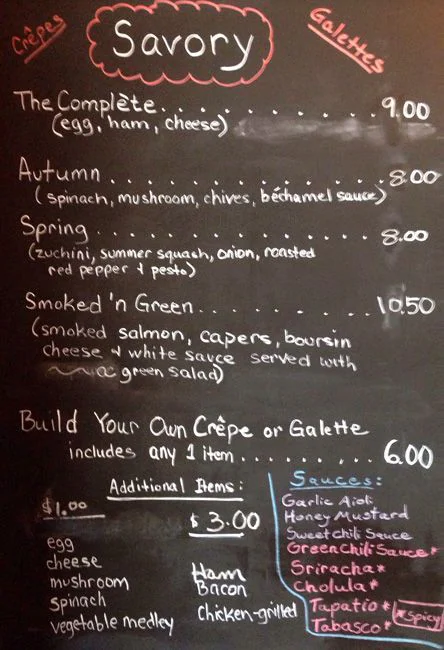 Crêpes
Savory
Galettes
The Complète.......... 9.00
(egg, ham, cheese)
Autumn................ 8.00
(spinach, mushroom, chives, béchamel sauce)
Spring................ 8.00
(zuchini, summer squash, onion, roasted
red pepper & pesto)
Smoked 'n Green....... 10.50
(smoked salmon, capers, boursin
cheese & white sauce served with
a green salad)
Build Your Own Crêpe or Galette
includes any 1 item........ 6.00
Additional Items:
$1.00
egg
cheese
mushroom
spinach
vegetable medley
$3.00
Ham
Bacon
Chicken-grilled
Sauces:
Garlic Aioli
Honey Mustard
Sweet Chili Sauce
Green Chili Sauce*
Sriracha*
Cholula*
Tapatio*
Tabasco*
*Spicy